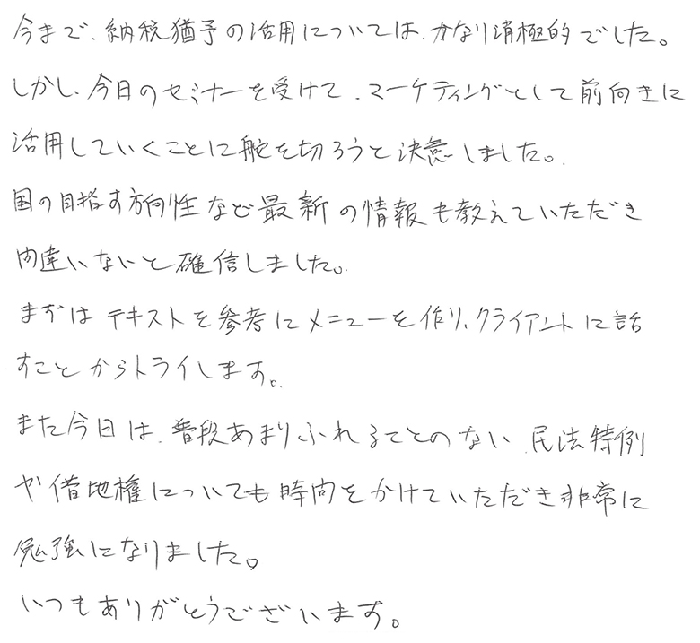 今まで、納税猶予の活用については、かなり消極的でした。
しかし、今日のセミナーを受けて、マーケティングとして前向きに
活用していくことに舵を切ろうと決意しました。
国の目指す方向性など最新の情報も教えていただき
間違いないと確信しました。
まずはテキストを参考にメニューを作り、クライアントに話
すことからトライします。
また今日は、普段あまりふれることのない、民法特例
や借地権についても時間をかけていただき非常に
勉強になりました。
いつもありがとうございます。